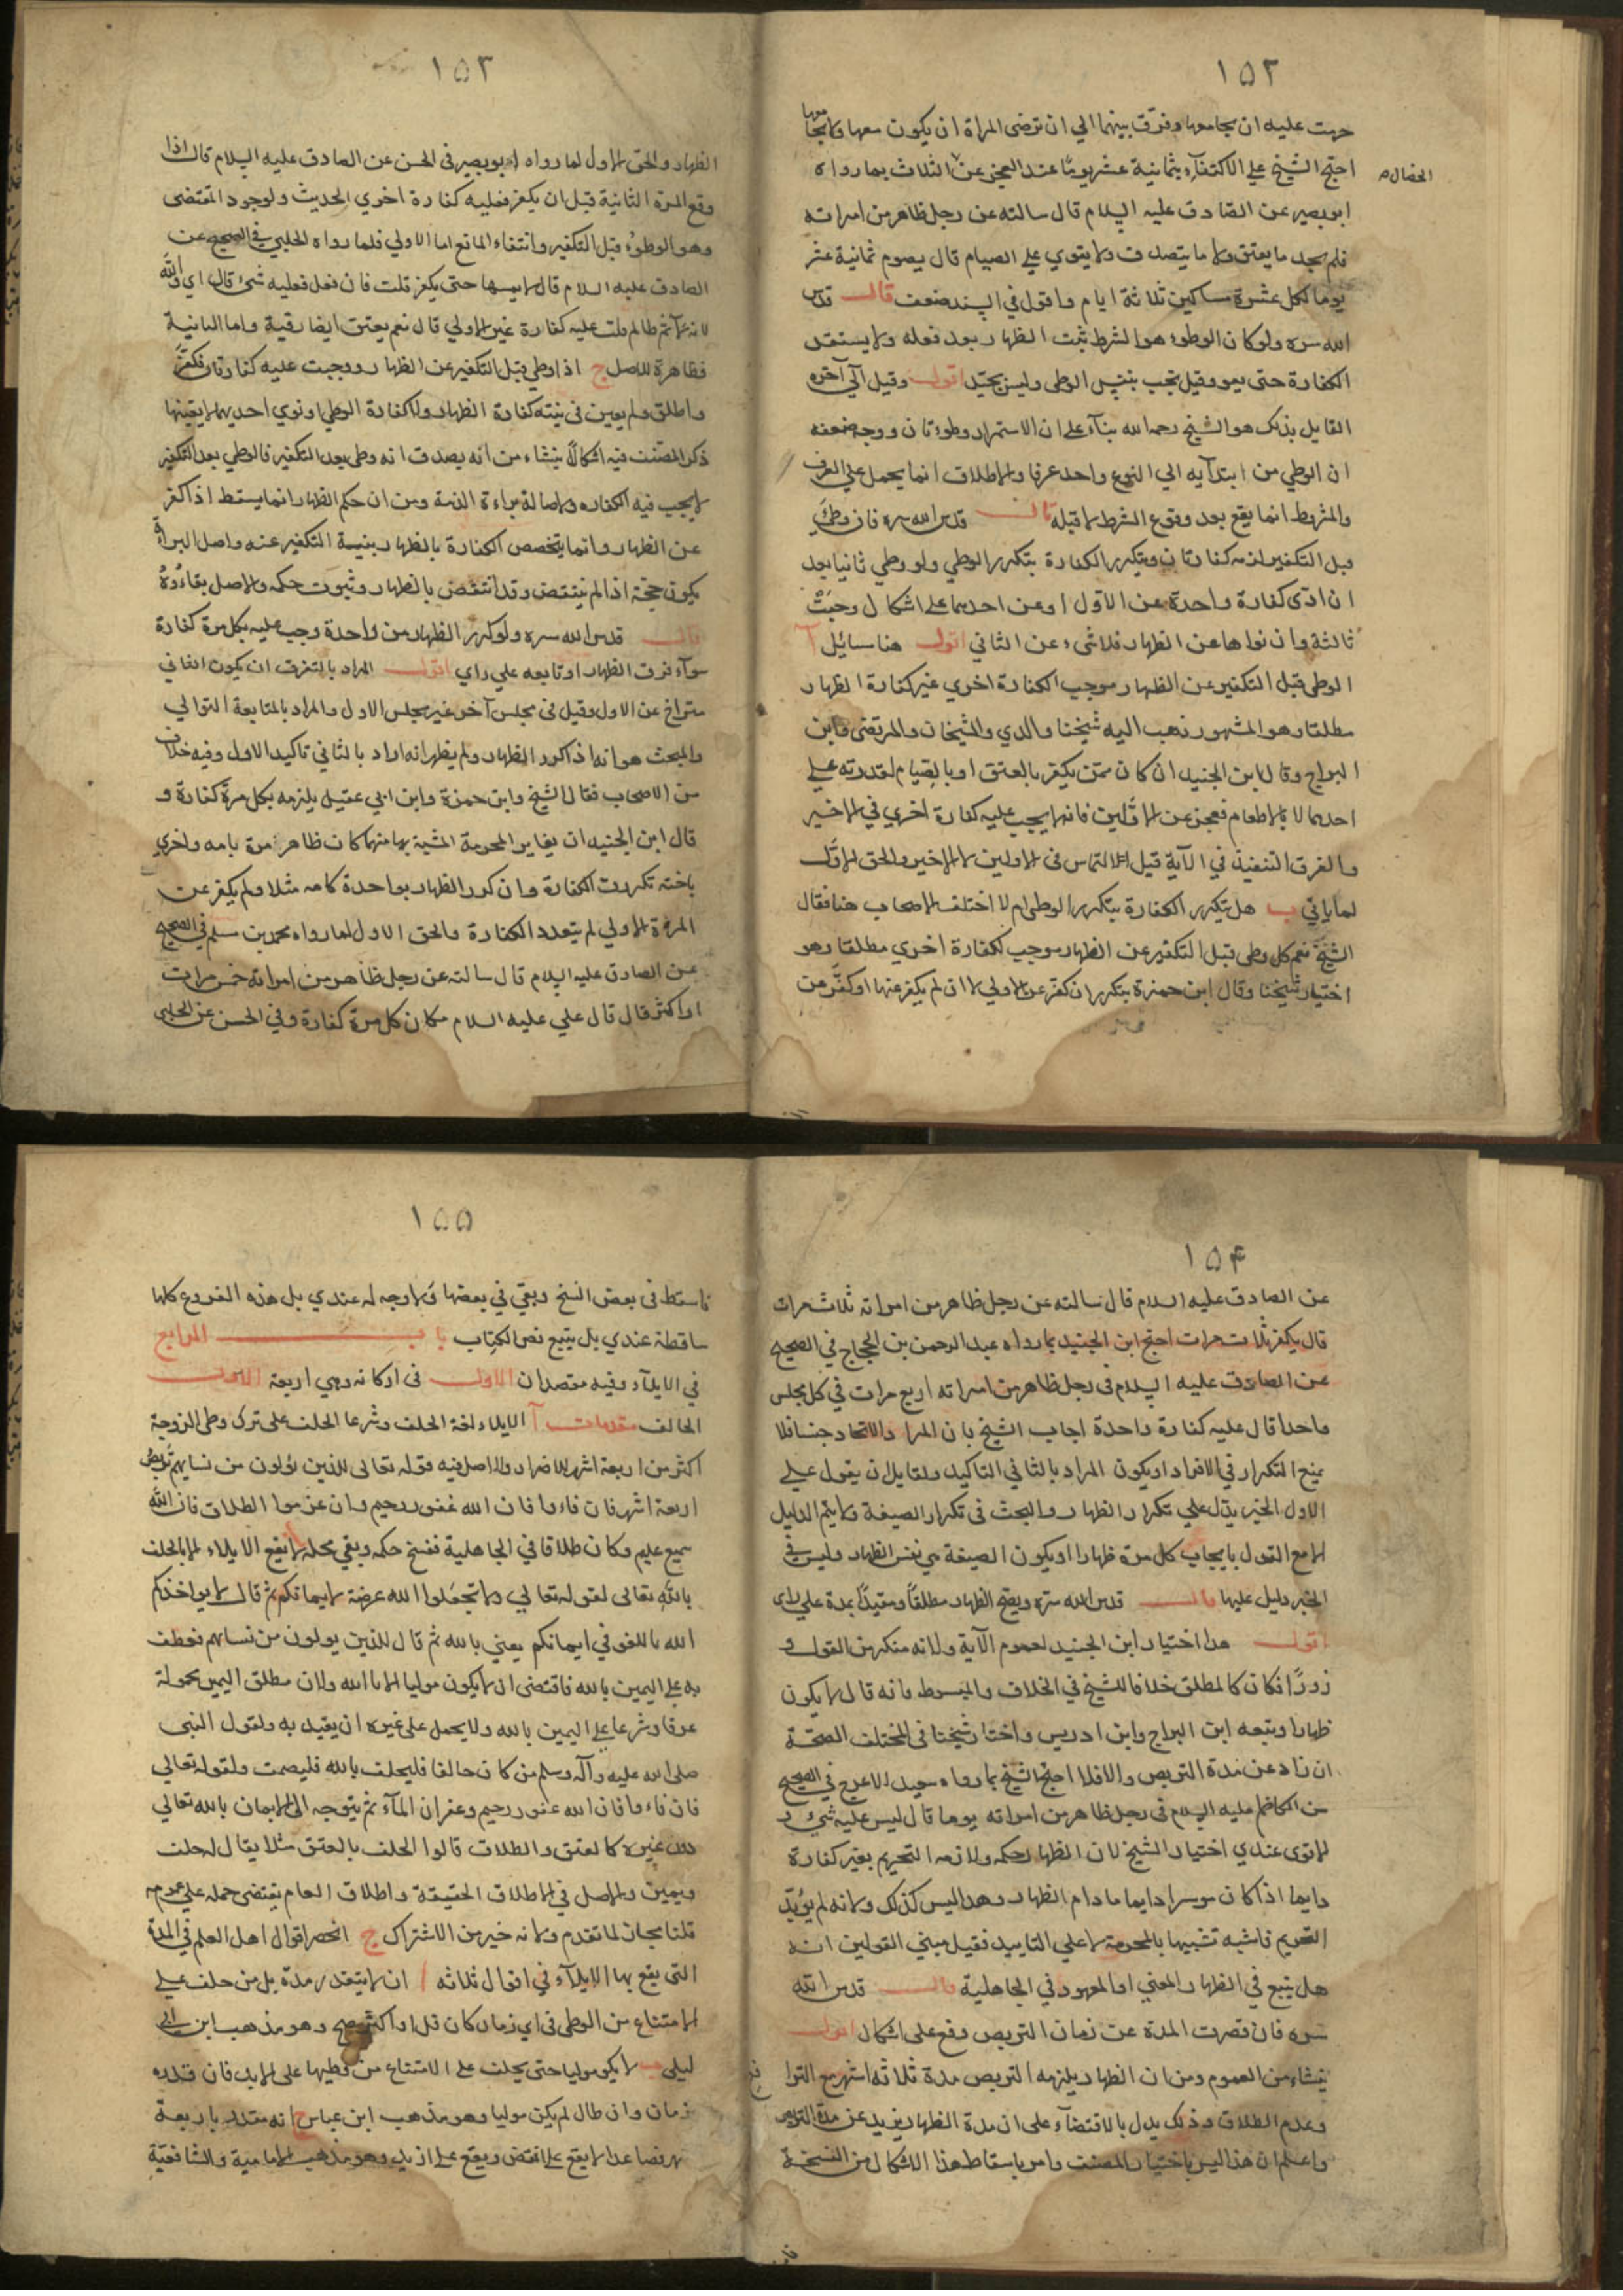 ١٥٢
حرمت عليه ان يجامعها وفرق بينهما الي ان ترضى المراة ان يكون معها ولا يجامعها
احتج الشيخ علي الاكتفاء بثمانية عشر يوما عند العجز عن الثلاث بما رواه
الخصال
ابو بصير عن الصادق عليه السلام قال سالته عن رجل ظاهر من امراته
فلم يجد ما يعتق ولا ما يتصدق ولا يقوي علي الصيام قال يصوم ثمانية عشر
يوما لكل عشرة مساكين ثلاثة ايام واقول في السند ضعف قال قدس
الله سره ولو كان الوطوء هو الشرط ثبت الظهار بعد فعله ولا يستقر
الكفارة حتى يعود وقيل تجب بنفس الوطى وليس بجيد اقول وقيل الي آخره
القايل بذلك هو الشيخ رحمه الله بناء على ان الاستمرار وطؤ ثان ووجه ضعفه
ان الوطي من ابتدآيه الي النزوع واحد عرفا والاطلاق انما يحمل علي العرف
والمشروط انما يقع بعد وقوع الشرط لا قبله قال قدس الله سره فان وطئ
قبل التكفير لزمه كفارتان ويتكرر الكفارة بتكرر الوطي ولو وطي ثانيا بعد
ان ادى كفارة واحدة عن الاول او عن احدهما على اشكال وجبت
ثالثة وان نواها عن الظهار فلا شيء عن الثاني اقول هنا مسائل آ
الوطى قبل التكفير عن الظهار موجب الكفارة اخرى غير كفارة الظهار
مطلقا وهو المشهور ذهب اليه شيخنا والدي والشيخان والمرتضى وابن
البراج وقال ابن الجنيد ان كان ممن يكفر بالعتق او بالصيام لقدرته علي
احدهما لا بالاطعام فعجز عن الاولين فانه لا يجب عليه كفارة اخري في الاخير
والفرق التنفيذ في الآية قبل التماس في الاولين لا الاخير والحق الاول
لما ياتي ب هل تتكرر الكفارة بتكرر الوطى ام لا اختلف الاصحاب هنا فقال
الشيخ نعم كل وطى قبل التكفير عن الظهار موجب لكفارة اخري مطلقا وهو
اختيار شيخنا وقال ابن حمزة يتكرر ان كفر عن الاولي لا ان لم يكفر عنها او كفر عن
١٥٣
الظهار والحق الاول لما رواه ابو بصير في الحسن عن الصادق عليه السلام قال اذا
وقع المرة الثانية قبل ان يكفر فعليه كفارة اخري الحديث ولوجود المقتضى
وهو الوطؤ قبل التكفير وانتفاء المانع اما الاولي فلما رواه الحلبي في الصحيح عن
الصادق عليه السلام قال لا يمسها حتى يكفر قلت فان فعل فعليه شئ قال اي والله
انه لآثم ظالم قلت عليه كفارة غير الاولي قال نعم يعتق ايضا رقبة واما الثانية
فظاهرة للاصل ج اذا وطي قبل التكفير عن الظهار ووجبت عليه كفارتان فكفر
واطلق ولم يعين في نيته كفارة الظهار ولا كفارة الوطى او نوي احديهما لا يقينها
ذكر المصنف فيه اشكالا ينشاء من انه يصدق انه وطى بعد التكفير فالوطي بعد التكفير
لا يجب فيه الكفاره ولاصالة براءة الذمة ومن ان حكم الظهار انما يسقط اذا كفر
عن الظهار وانما يتخصص الكفارة بالظهار بنية التكفير عنه واصل البراءة
يكون حجة اذا لم ينتقض وقد انتقض بالظهار وثبوت حكمه والاصل بقاؤه
قال قدس الله سره ولو كرر الظهار من واحدة وجب عليه بكل مرة كفارة
سوآء فرق الظهار او تابعه علي راي اقول المراد بالتفرق ان يكون الثاني
متراخ عن الاول وقيل في مجلس آخر غير مجلس الاول والمراد بالمتابعة التوالي
والبحث هو انه اذا كرر الظهار ولم يظهر انه اراد بالثاني تاكيد الاول وفيه خلاف
من الاصحاب فقال الشيخ وابن حمزة وابن ابي عقيل يلزمه بكل مرة كفارة و
قال ابن الجنيد ان يغاير المحرمة المشبه بها منهما كان ظاهر مرة بامه واخري
باخته تكررت الكفارة وان كرر الظهار بواحدة كامه مثلا ولم يكفر عن
المرة الاولي لم يتعدد الكفارة والحق الاول لما رواه محمد بن مسلم في الصحيح
عن الصادق عليه السلام قال سالته عن رجل ظاهر من امراته خمس مرات
او اكثر قال قال علي عليه السلام مكان كل مرة كفارة وفي الحسن عن الحلبي
١٥۴
عن الصادق عليه السلام قال سالته عن رجل ظاهر من امراته ثلاث مرات
قال يكفر ثلاث مرات احتج ابن الجنيد بما رواه عبد الرحمن بن الحجاج في الصحيح
عن الصادق عليه السلام في رجل ظاهر من امراته اربع مرات في كل مجلس
واحد قال عليه كفارة واحدة اجاب الشيخ بان المراد الاتحاد جنسا فلا
يمنع التكرار في الافراد او يكون المراد بالثاني التاكيد ولقايل ان يقول علي
الاول الخبر يدل علي تكرار الظهار والبحث في تكرار الصيغة ولا يتم الدليل
الا مع القول بايجاب كل مرة ظهارا او يكون الصيغة هي نفس الظهار وليس في
الخبر دليل عليها قال قدس الله سره ويصح الظهار مطلقا ومقيدا بمدة علي راى
اقول هذا اختيار ابن الجنيد لعموم الآية ولانه منكر من القول و
زورا فكان كالمطلق خلافا للشيخ في الخلاف والمبسوط فانه قال لا يكون
ظهارا وتبعه ابن البراج وابن ادريس واختار شيخنا في المختلف الصحة
ان زاد عن مدة التربص والا فلا احتج الشيخ بما رواه سعيد الاعرج في الصحيح
عن الكاظم عليه السلام في رجل ظاهر من امراته يوما قال ليس عليه شئ و
الاقوى عندي اختيار الشيخ لان الظهار حكمه ولازمه التحريم بغير كفارة
دايما اذا كان موسرا دايما ما دام الظهار وهذا ليس كذلك ولانه لم يؤبد
التحريم فاشبه تشبيهها بالمحرمة لا علي التاييد فقيل مبني القولين انه
هل يتبع في الظهار المعني او المعهود في الجاهلية قال قدس الله
سره فان قصرت المدة عن زمان التربص وقع على اشكال اقول
ينشاء من العموم ومن ان الظهار يلزمه التربص مدة ثلاثة اشهر مع الترافع
وعدم الطلاق وذلك يدل بالاقتضاء على ان مدة الظهار يزيد عن مدة التربص
واعلم ان هذا ليس باختيار المصنف وامر باسقاط هذا الاشكال من النسخة
١٥٥
فاسقط في بعض النسخ وبقي في بعضها ولا وجه له عندي بل هذه الفروع كلها
ساقطة عندي بل يتبع نص الكتاب باب الرابع
في الايلاء وفيه مقصدان الاول في اركانه وهي اربعة الاول
الحالف مقدمات آ الايلاء لغة الحلف وشرعا الحلف على ترك وطى الزوجة
اكثر من اربعة اشهر للاضرار والاصل فيه قوله تعالى للذين يؤلون من نسايهم تربص
اربعة اشهر فان فاءوا فان الله غفور رحيم وان عزموا الطلاق فان الله
سميع عليم وكان طلاقا في الجاهلية فنسخ حكمه وبقي محله لا يقع الايلاء الا بالحلف
بالله تعالى لقوله تعالي ولا تجعلوا الله عرضة لايمانكم ثم قال لا يواخذكم
الله باللغو في ايمانكم يعني بالله ثم قال للذين يولون من نسائهم فعطف
به علي اليمين بالله فاقتضى ان لا يكون موليا الا بالله ولان مطلق اليمين محمولة
عرفا وشرعا علي اليمين بالله ولا يحمل على غيره ان يقيد به ولقول النبي
صلى الله عليه وآله وسلم من كان حالفا فليحلف بالله فليصمت ولقوله تعالى
فان فاءوا فان الله غفور رحيم وغفران المآثم يتوجه الى الايمان بالله تعالي
دون غيره كالعتق والطلاق قالوا الحلف بالعتق مثلا يقال له حلف
ويمين والاصل في الاطلاق الحقيقة واطلاق العام يقتضى حمله علي عمومه
قلنا مجاز لما تقدم ولانه خير من الاشتراك ج انحصر اقوال اهل العلم في المدة
التي يقع بها الايلاء في اقوال ثلاثة ا ان لا يتقدر مدة بل من حلف علي
الامتناع من الوطى في اي زمان كان قل او اكثر صح وهو مذهب ابن ابي
ليلى ب لا يكو موليا حتى يحلف على الامتناع من وطيها على الابد فان قيده
زمان وان طال لم يكن موليا وهو مذهب ابن عباس ج انه متقدر باربعة
اشهر فصاعدا لا يقع علي انقص ويقع علي ازيد وهو مذهب الامامية والشافعية